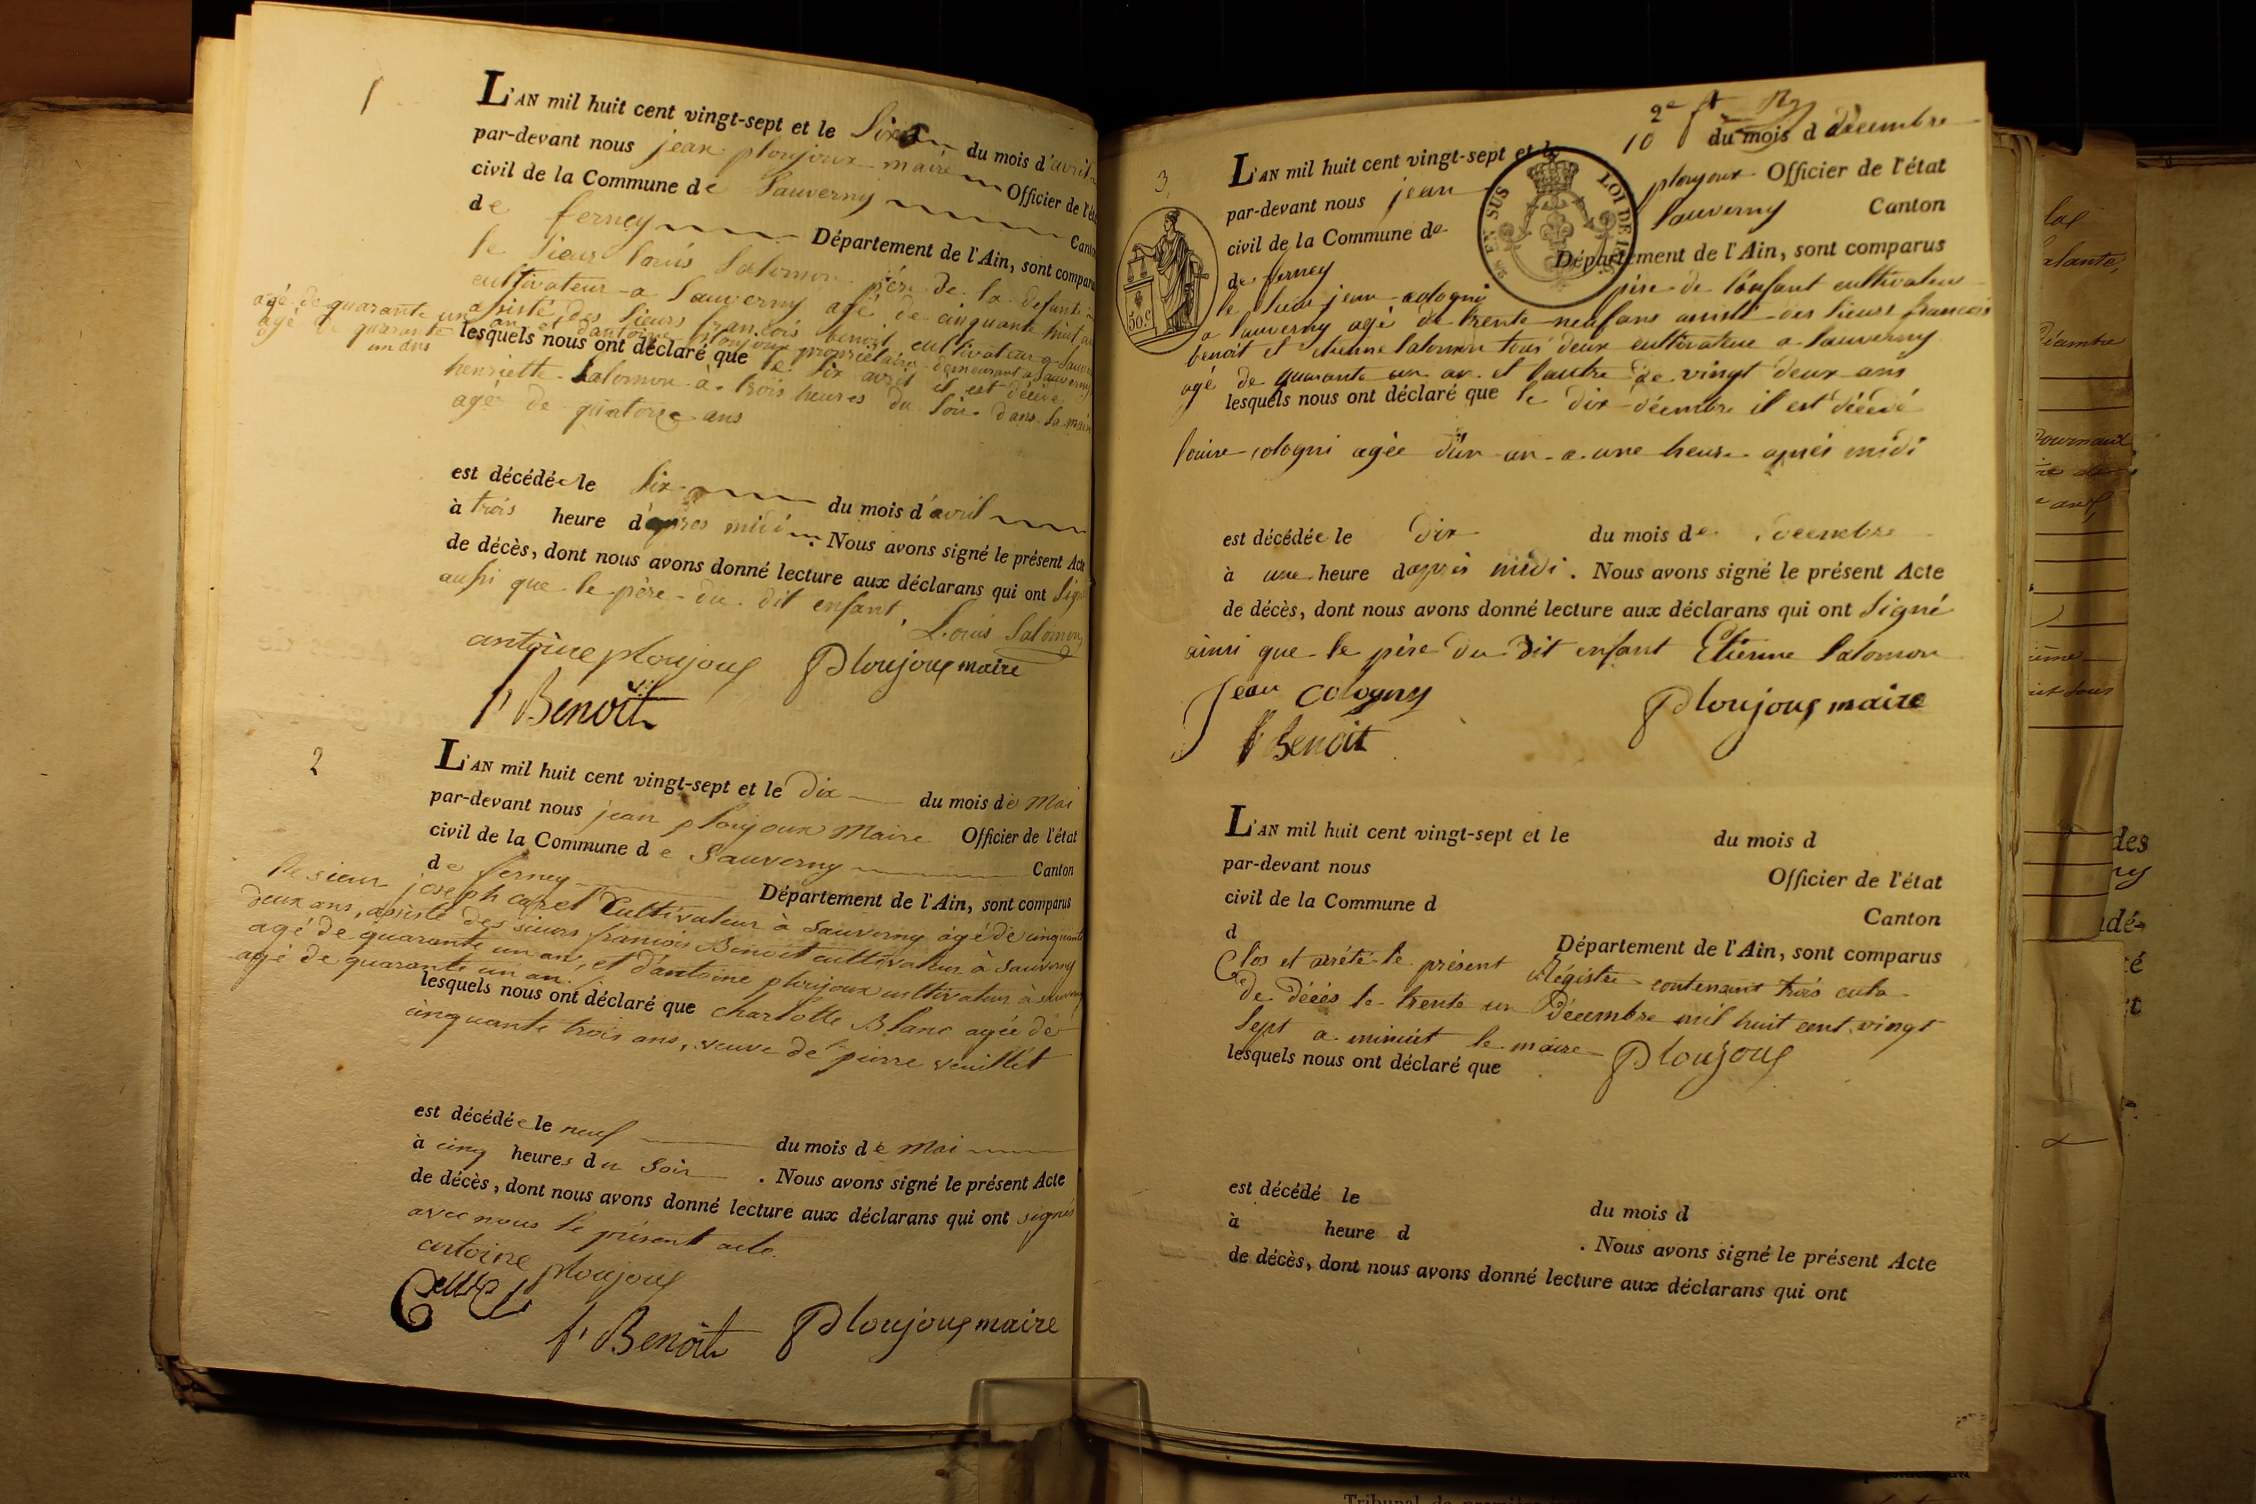 1
L'AN mil huit cent vingt-sept et le six du mois d'avril
par-devant nous jean ploujoux maire Officier de l'ét
civil de la Commune de Sauverny Canton
de ferney Département de l'Ain, sont comparus
le sieur louis Salomon père de la defunte
cultivateur a Sauverny agé de cinquante huit an
asisté des sieurs francois benoit cultivateur a Sauverny
agé de quarante un an et d'antoine ploujoux propriétaire demeurant a Sauverny
agé de quarante un ans
lesquels nous ont déclaré que le six avril il est décédé
henriette Salomon à trois heures du soir dans sa maison
agé de quatorze ans
est décédée le six du mois d'avril
à trois heure d'après midi. Nous avons signé le présent Acte
de décès, dont nous avons donné lecture aux déclarans qui ont signé
ausi que le père du dit enfant. Louis Salomon
antoine ploujoux Ploujoux maire
f. Benoît
2
L'AN mil huit cent vingt-sept et le dix du mois de mai
par-devant nous jean ploujoux Maire Officier de l'état
civil de la Commune de Sauverny Canton
de ferney Département de l'Ain, sont comparus
le sieur joseph caret Cultivateur à Sauverny âgé de cinquante
deux ans, assisté des sieurs francois Benoit cultivateur à Sauverny
agé de quarante un an, et d'antoine ploujoux cultivateur à sauverny
agé de quarante un an.
lesquels nous ont déclaré que charlotte Blanc agée de
cinquante trois ans, veuve de pierre veuillet
est décédée le neuf du mois de Mai
à cinq heures du Soir. Nous avons signé le présent Acte
de décès, dont nous avons donné lecture aux déclarans qui ont signés
avec nous le présent acte.
antoine ploujoux
f. Benoît Ploujoux maire
2e
3
L'AN mil huit cent vingt-sept et le 10 du mois d décembre
par-devant nous jean ploujoux Officier de l'état
civil de la Commune de Sauverny Canton
de ferney Département de l'Ain, sont comparus
le sieur jean cologni père de l'enfant cultivateur
a Sauverny agé de trente neuf ans assisté des sieurs francois
benoit et étienne Salomon tous deux cultivateur a Sauverny
agé de quarante un an et l'autre de vingt deux ans
lesquels nous ont déclaré que le dix décembre il est décédé
louise cologni agée d'un an a une heure après midi
est décédée le dix du mois de décembre
à une heure d'après midi. Nous avons signé le présent Acte
de décès, dont nous avons donné lecture aux déclarans qui ont Signé
ainsi que le père du dit enfant Etienne Salomon
Jean Cologny Ploujoux maire
f. Benoît
50 c
EN SUS
LOI DE
L'AN mil huit cent vingt-sept et le du mois d
par-devant nous Officier de l'état
civil de la Commune d Canton
d Département de l'Ain, sont comparus
Clos et arrété le présent Régistre contenant trois acte
De décés le trente un Décembre mil huit cent vingt
Sept a minuit le maire Ploujoux
lesquels nous ont déclaré que
est décédé le du mois d
à heure d . Nous avons signé le présent Acte
de décès, dont nous avons donné lecture aux déclarans qui ont